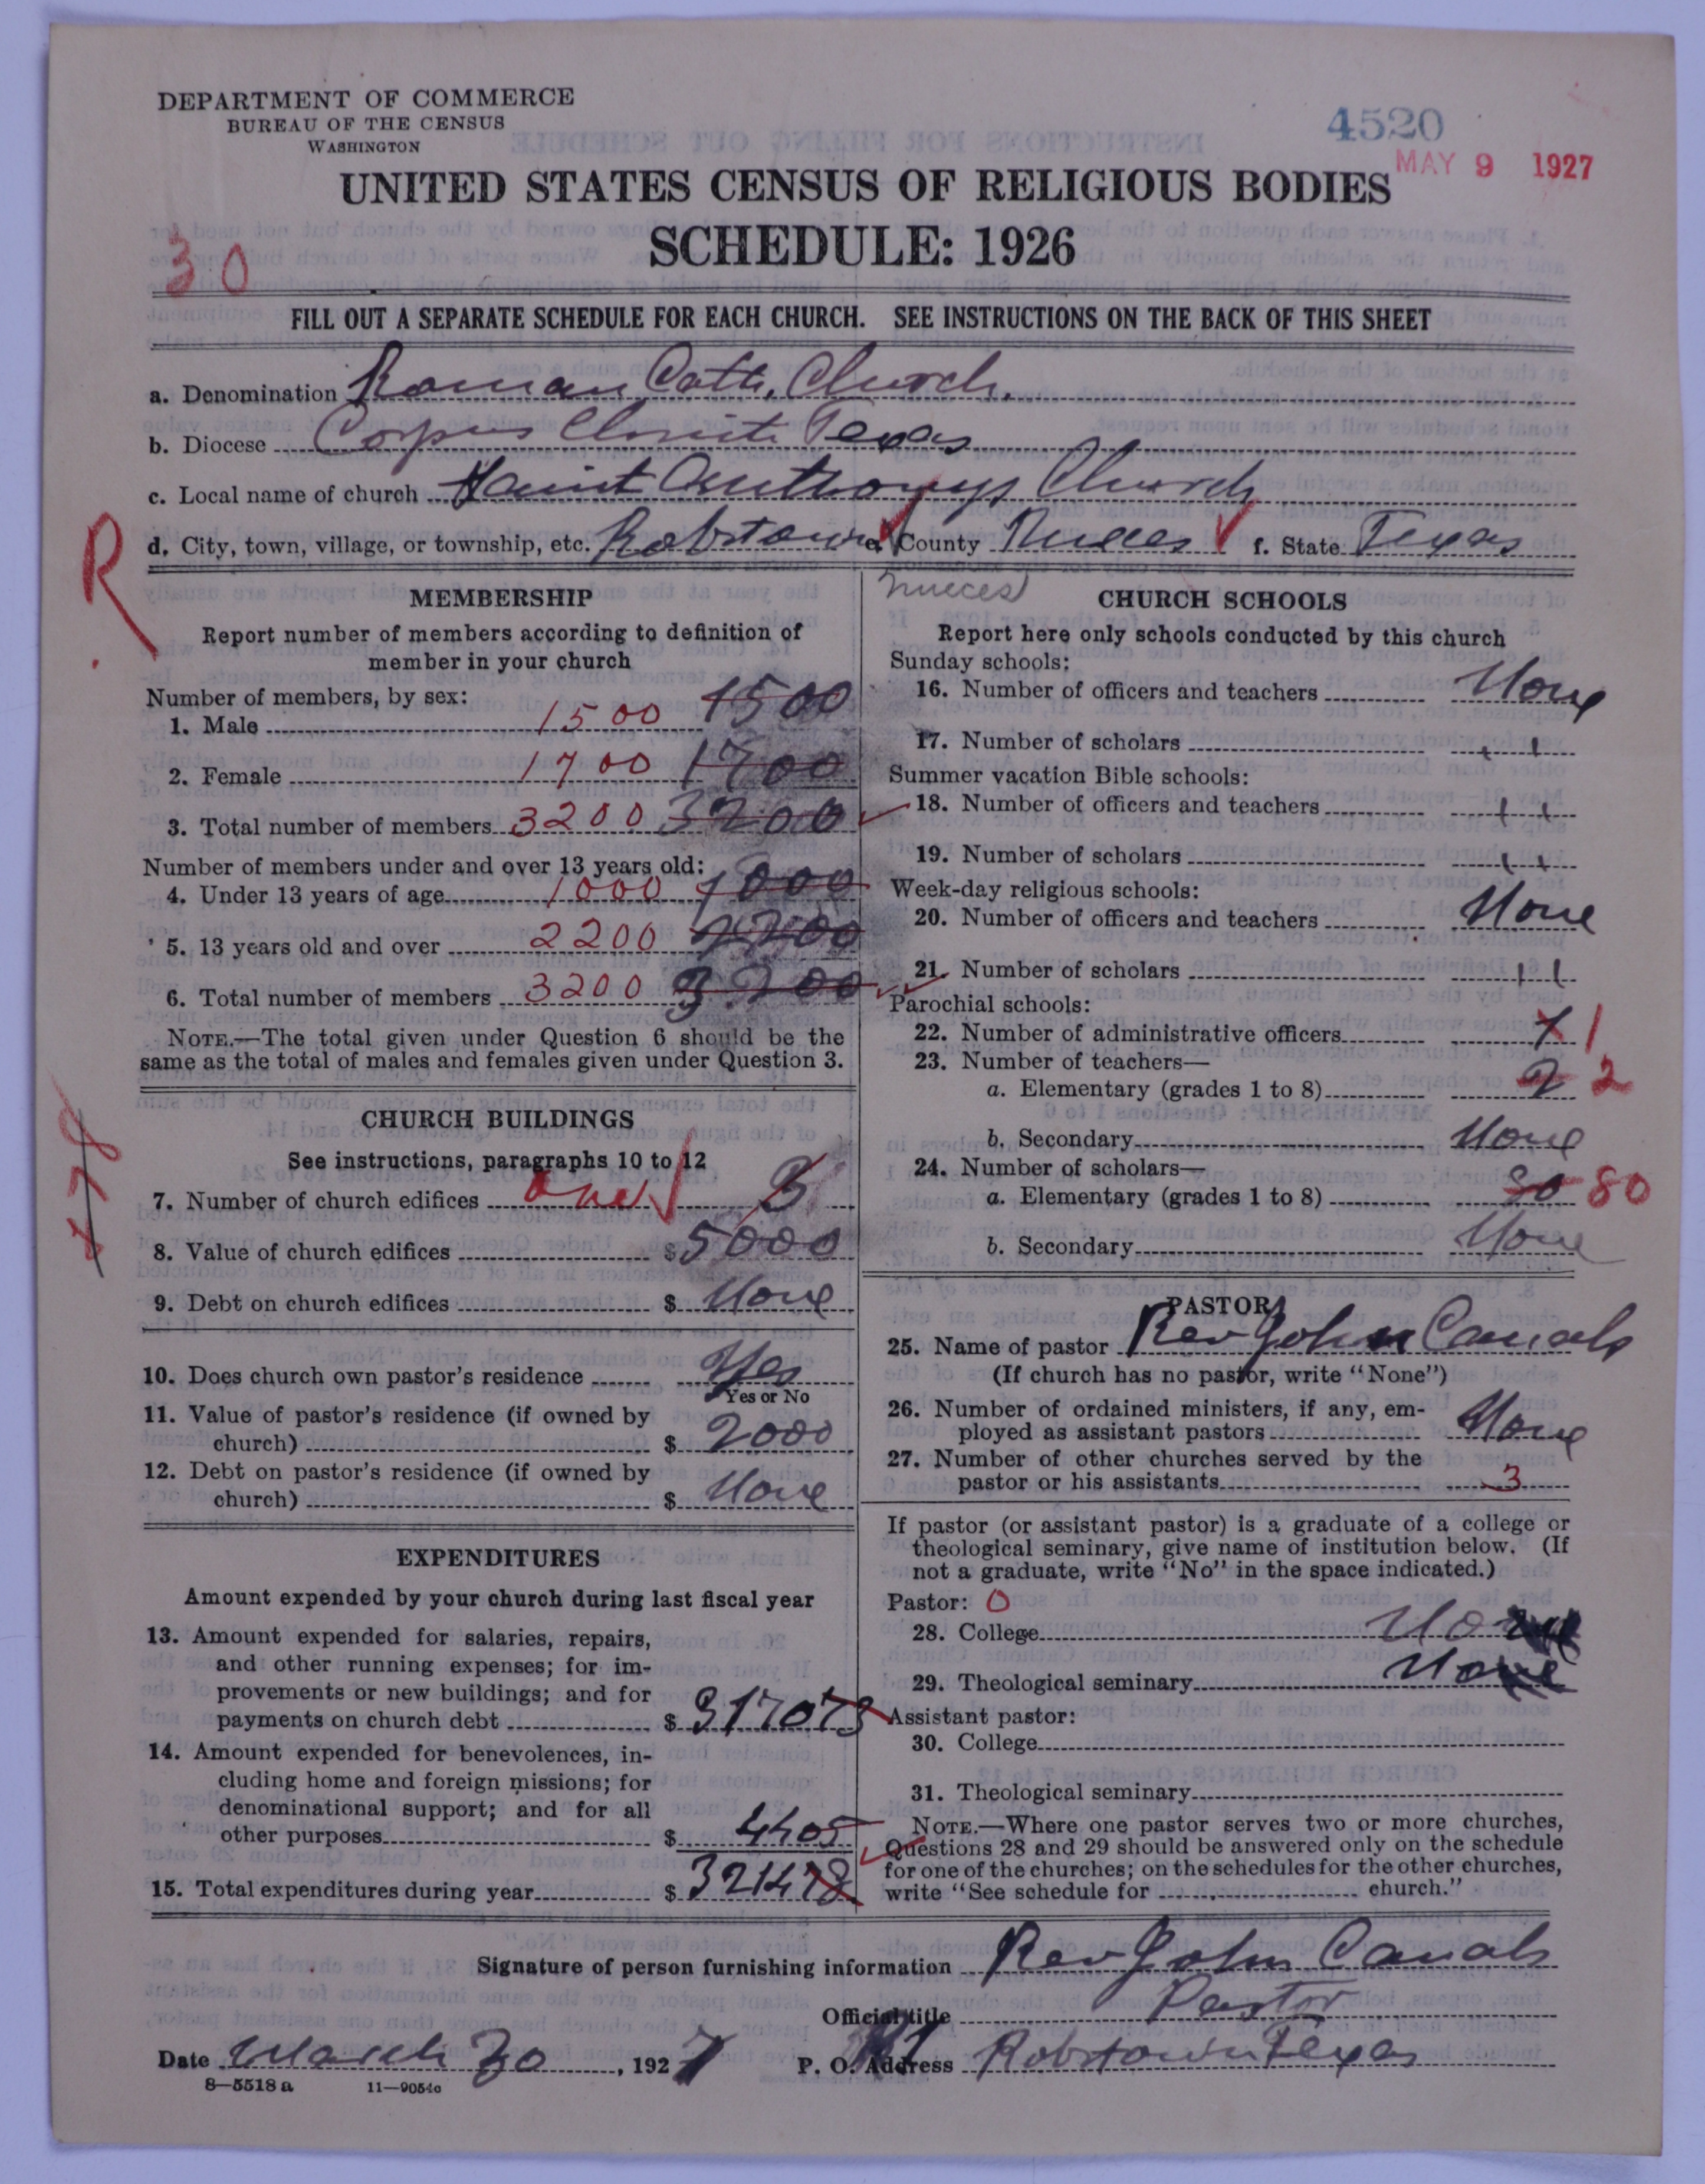 DEPARTMENT OF COMMERCE
BUREAU OF THE CENSUS
WASHINGTON
4520
MAY 9 1927
UNITED STATES CENSUS OF RELIGIOUS BODIES
SCHEDULE: 1926
30
FILL OUT A SEPARATE SCHEDULE FOR EACH CHURCH. SEE INSTRUCTIONS ON THE BACK OF THIS SHEET
a. Denomination Roman Cath. Church.
b. Diocese Corpus Christi Texas
c. Local name of church Saint Anthonys Church
d. City, town, village, or township, etc. Robstown e. County Nueces f. State Texas
R
Nueces
MEMBERSHIP
Report number of members according to definition of
member in your church
Number of members, by sex:
1. Male 1500 1500
2. Female 1700 1700
3. Total number of members 3200 3200
Number of members under and over 13 years old:
4. Under 13 years of age 1000 1000
5. 13 years old and over 2200 2200
6. Total number of members 3200 3200
NOTE.—The total given under Question 6 should be the
same as the total of males and females given under Question 3.
CHURCH BUILDINGS
See instructions, paragraphs 10 to 12
7. Number of church edifices one 3
8. Value of church edifices $ 5000
9. Debt on church edifices $ None
10. Does church own pastor's residence Yes
Yes or No
11. Value of pastor's residence (if owned by
church) $ 2000
12. Debt on pastor's residence (if owned by
church) $ None
EXPENDITURES
Amount expended by your church during last fiscal year
13. Amount expended for salaries, repairs,
and other running expenses; for im-
provements or new buildings; and for
payments on church debt $ 317073
14. Amount expended for benevolences, in-
cluding home and foreign missions; for
denominational support; and for all
other purposes $ 4405
15. Total expenditures during year $ 321478
CHURCH SCHOOLS
Report here only schools conducted by this church
Sunday schools:
16. Number of officers and teachers None
17. Number of scholars
Summer vacation Bible schools:
18. Number of officers and teachers
19. Number of scholars
Week-day religious schools:
20. Number of officers and teachers None
21. Number of scholars
Parochial schools:
22. Number of administrative officers 1 1
23. Number of teachers—
a. Elementary (grades 1 to 8) 2 2
b. Secondary None
24. Number of scholars—
a. Elementary (grades 1 to 8) 80 80
b. Secondary None
PASTOR
25. Name of pastor Rev John Canals
(If church has no pastor, write "None")
26. Number of ordained ministers, if any, em-
ployed as assistant pastors None
27. Number of other churches served by the
pastor or his assistants 3
If pastor (or assistant pastor) is a graduate of a college or
theological seminary, give name of institution below. (If
not a graduate, write "No" in the space indicated.)
Pastor: O
28. College No
29. Theological seminary No
Assistant pastor:
30. College
31. Theological seminary
NOTE.—Where one pastor serves two or more churches,
Questions 28 and 29 should be answered only on the schedule
for one of the churches; on the schedules for the other churches,
write "See schedule for church."
Signature of person furnishing information Rev John Canals
Official title Pastor
Date March 30, 1927 P. O. Address Robstown Texas
8—5518 a 11—9054c